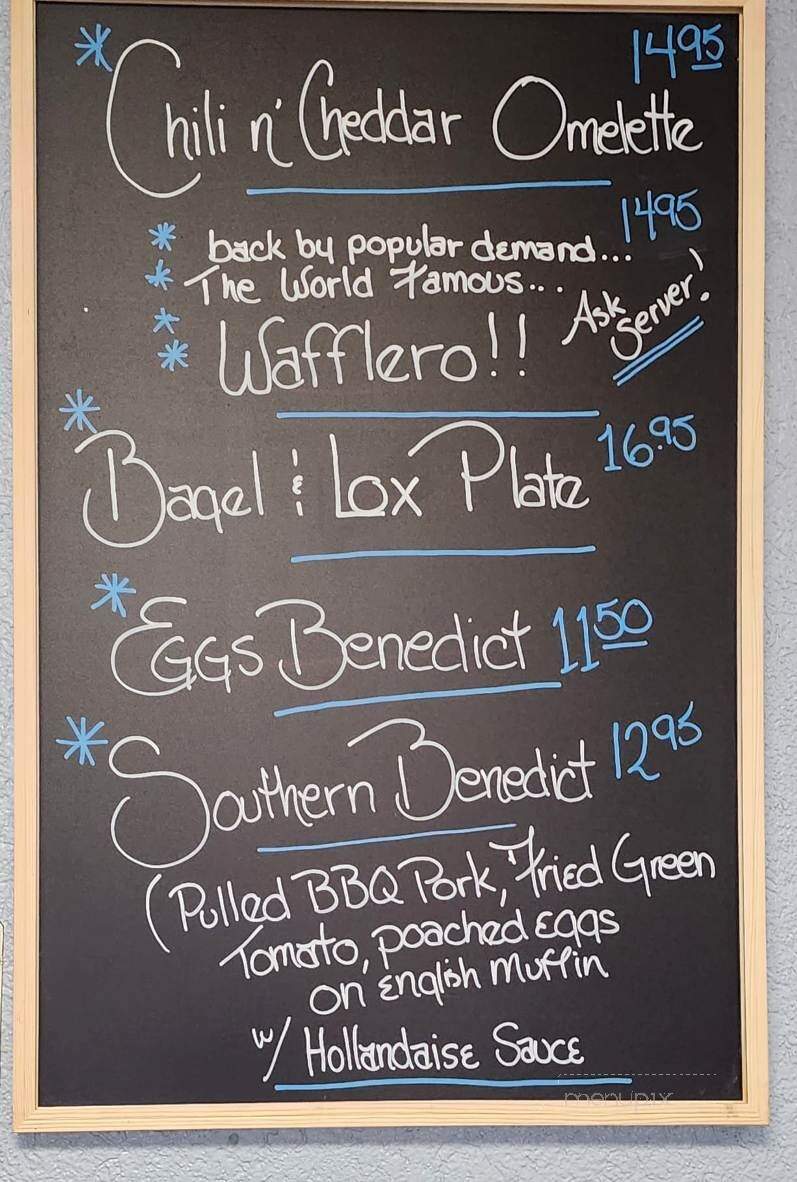 * Chili n' Cheddar Omelette 14 95
* back by popular demand... 1495
* The World Famous...
*
* Wafflero!! Ask Server!
* Bagel & Lox Plate 16.95
* Eggs Benedict 11 50
* Southern Benedict 12 95
(Pulled BBQ Pork, Fried Green
Tomato, poached Eggs
on English Muffin
w/ Hollandaise Sauce
menupix